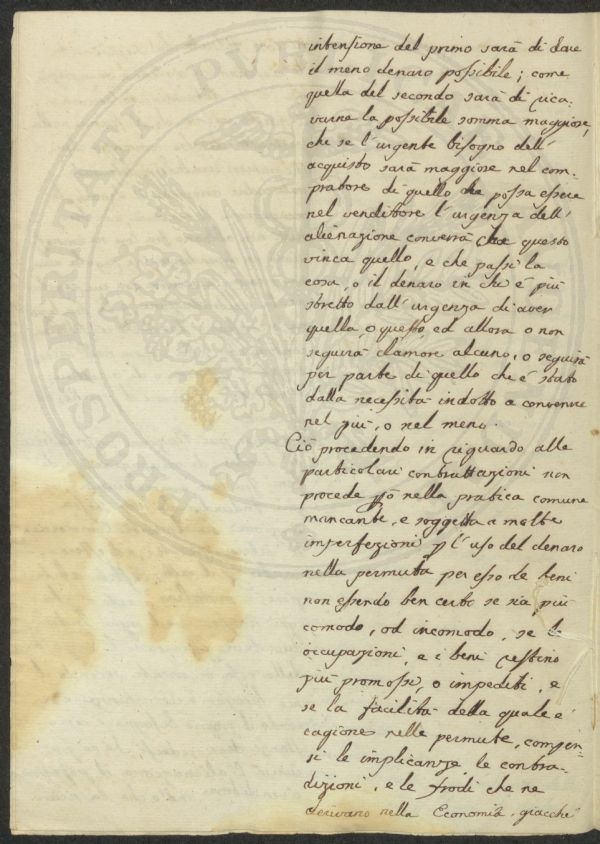 intensione del primo sarà di dare
il meno denaro possibile; come
quella del secondo sarà di rica-
varne la possibile somma maggiore,
che se l'urgente bisogno dell'
acquisto sarà maggiore nel com-
pratore di quello che possa essere
nel venditore l'urgenza dell'
alienazione converrà che questo
vinca quello, e che passi la
cosa, o il denaro in chi è più
stretto dall'urgenza di aver
quella, o questo, ed allora o non
seguirà clamore alcuno, o seguirà
per parte di quello che è stato
dalla necessità indotto a convenire
nel più, o nel meno.
Ciò procedendo in riguardo alle
particolari contrattazioni non
procede pò nella pratica comune
mancante, e soggetta a molte
imperfezioni p l'uso del denaro
nella permuta per esso de beni
non essendo ben certo se sia più
comodo, od incomodo, se le
occupazioni, e i beni restino
più promossi, o impediti, e
se la facilità della quale è
cagione nelle permute, compen-
si le implicanze, le contra-
dizioni, e le frodi che ne
derivano nella Economia, giacchè
PVB